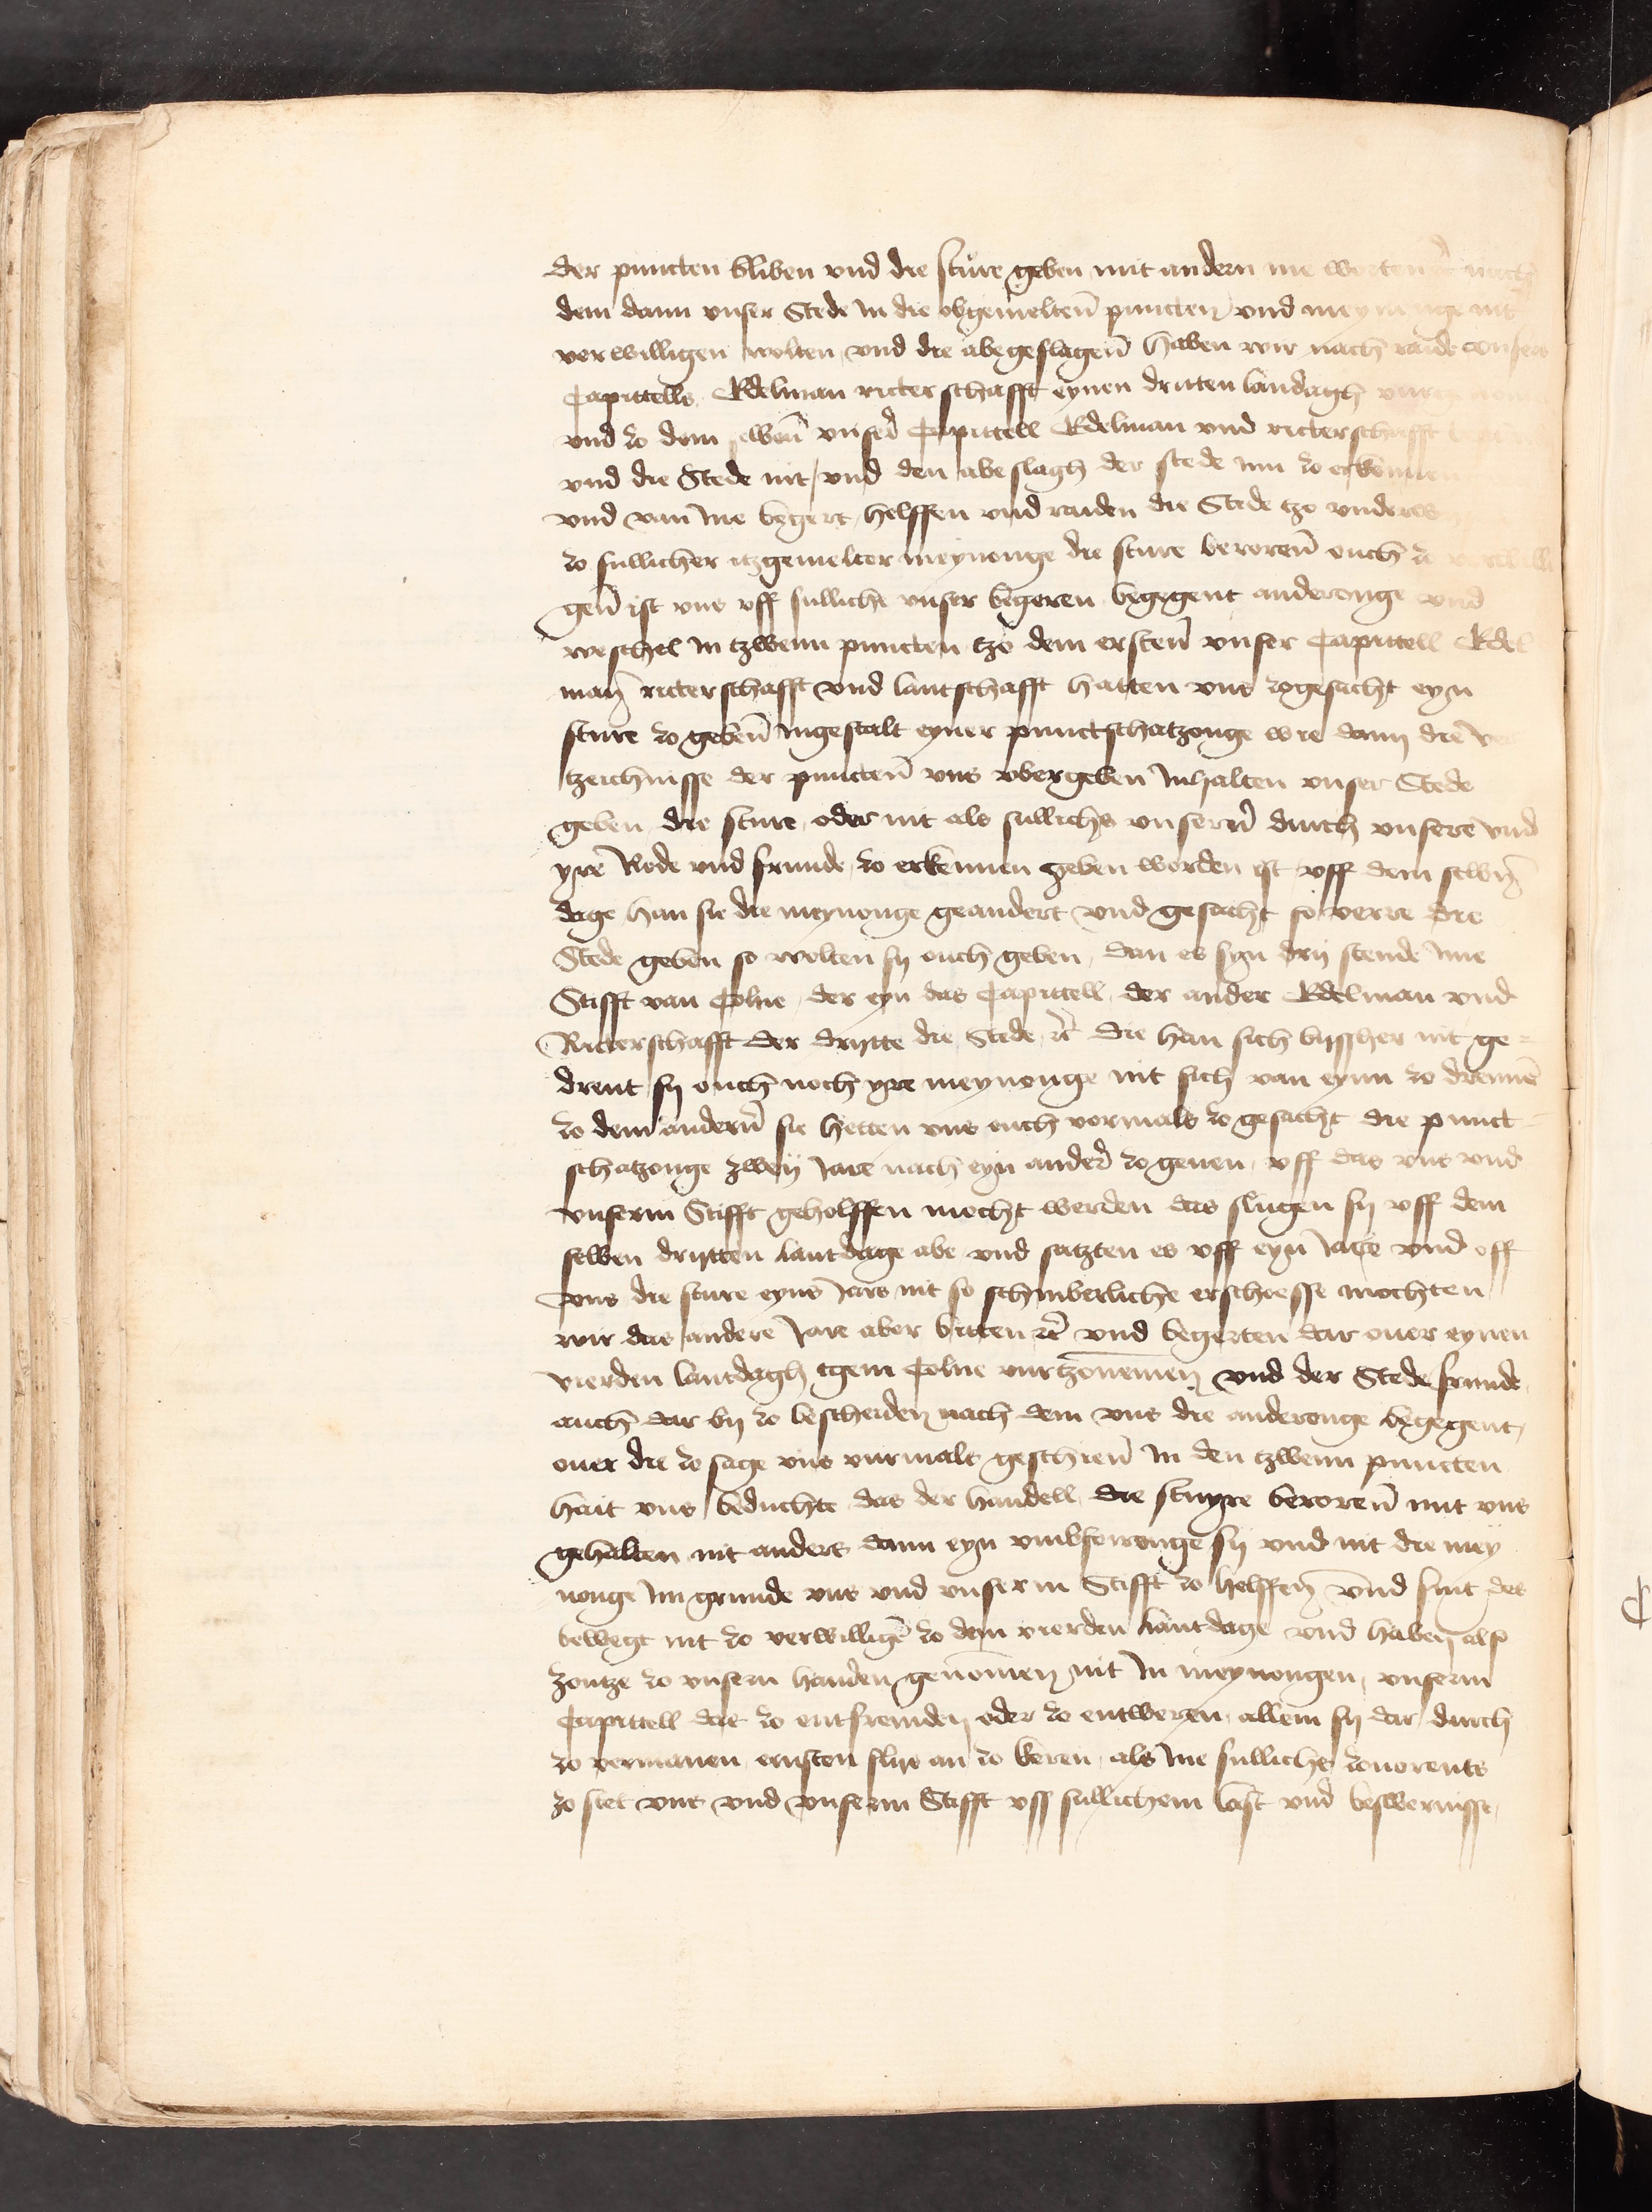 der puncten bliben vnd die sture geben mit andern me worten nach
dem dann vnser Stede in die obgemelten puncten vnd meynunge nit
verwilligen wolten vnd die abegeslagen haben wir nach raide vnsers
Capittells Edelman ritterschafft eynen dritten landagh
vnd zo dem selben vnser Capittell Edelman vnd ritterschafft
vnd die Stede nit vnd den abeslagh der stede inn zo erkennen
vnd van ine begert helffen vnd raiden die Stede tzo vnderwis
zo sullicher itzgemelter meynonge die sture beroren ouch zo verwilli
gen ist vns vff sulliche vnser begeren begegent anderonge vnd
weschel in tzwenn puncten tzo dem ersten vnser Capittell Edel
man ritterschafft vnd lantschafft hatten vns zogesacht eyn
sture zo geben ingestalt eyner punctschatzonge wie dann die ver
tzeichnisse der puncten vns vbergeben inhalten vnser Stede
geben die sture oder nit als sullichs vnsern durch vnsere vnd
yre Rede vnd frunde zo erkennen geben worden ist vff dem selben
dage han sie die meynonge geandert vnd gesacht so verre die
Stede geben so wolten sy ouch geben dan es syn dry stende ime
Stifft van Colne der eyn das Capittell der ander Edelman vnd
Ritterschafft der drytte die Stede etc die han sich byssher nit ge=
drent sy ouch noch yre meynonge nit sich van eynn zo drennen
zo dem andern sie hetten vns ouch vormals zo gesacht die punct=
schatzonge zwey Jare nach eyn ander zo geuen vff das vns vnd
vnserm Stifft geholffen mocht werden das slugen sy vff dem
selben drytten lantdage abe vnd satzten es vff eyn Jare vnd off
vns die sture eyns Jars nit so schinberliche erschoesse mochten
wir das andere Jare aber bitten etc vnd begerten dar ouer eynen
vierden lantdagh tgem Colne vurtzonemen vnd der Stede frunde
auch dar by zo bescheiden nach dem vns die anderonge begegent
ouer die zo sage vns vurmals geschien in den tzwenn puncten
hait vns beduchte das der handell die stuyre beroren mit vns
gehalten nit anders dann eyn vmbfoironge sy vnd nit die mey
nonge im grunde vns vnd vnserm Stifft zo helffen vnd sint des
bewegt nit zo verwilligen zo dem vierden lantdage vnd haben also
Zontze zo vnsern handen genomen nit in meynongen vnserm
Capittell dat zo entfremden oder zo entweren allein sy dar durch
zo vermanen ernsten flys an zo keren als ine sullichs zouorents
zo siet vns vnd vnserm Stifft vss sullichem last vnd beswernisse